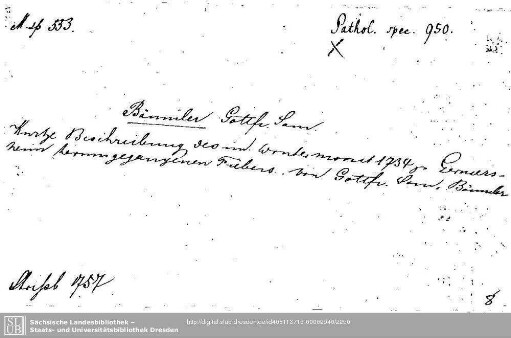 Msp 553.
Pathol. spec. 950.
X
Bäumler Gottfr. Sam.
Kurtze Beschreibung des im Wintermonat 1734 zu Germers-
heim herumgegangenen Fiebers. Von Gottfr. Sam. Bäumler
1757
8
Sächsische Landesbibliothek –
Staats- und Universitätsbibliothek Dresden